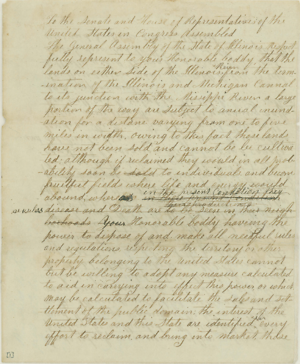 To the Senate and House of Representatives of the
United States in Congress Assembled
The General Assembly of the State of Illinois respect
fully represent to your Honorable boddy that the
lands on either side of the Illinois River from the term
ination of the Illinois and Michigan Cannal
to its junction with the Mississippi River a large
portion of the way are subject to anual inund
ation for a distance varying from one to five
miles in width, owing to this fact those lands
have not been sold and cannot be be cultiva
ted; although if reclaimed they would in all prob
ability soon be sold to individuals and become
fruitful fields where life and energy would
abound, where in their present condition
disease and Death are to be seen in their neigh
borhoods. Your Honorable boddy haveing the
power to dispose of and make all needful rules
and regulations respecting the territory or other
property belonging to the United States cannot
but be willing to adopt any measure calculated
to aid in carrying into effect this power or which
may be calculated to facilitate the sale and set
tlement of the public domain. the interest of the
United States and this State are identified, in every
effort to reclaim, and bring into market these